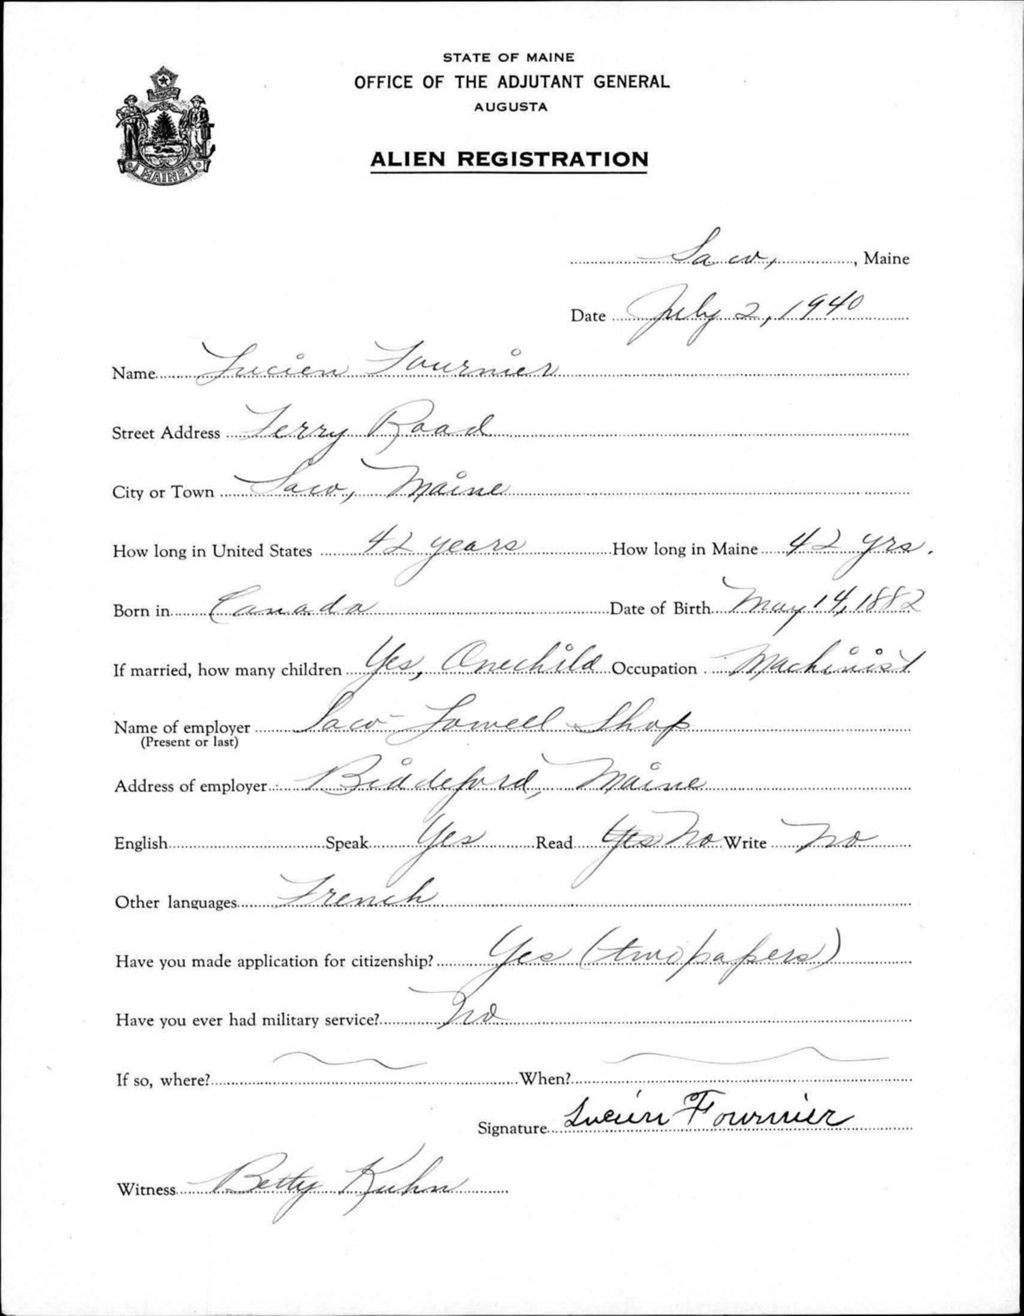 STATE OF MAINE
OFFICE OF THE ADJUTANT GENERAL
AUGUSTA
ALIEN REGISTRATION
MAINE
Saco, , Maine
Date July 2, 1940
Name Lucien Fournier
Street Address Ferry Road
City or Town Saco, Maine
How long in United States 42 years How long in Maine 42 yrs.
Born in Canada Date of Birth May 14, 1882
If married, how many children Yes, One child Occupation Machinist
Name of employer Saco-Lowell Shop
(Present or last)
Address of employer Biddeford, Maine
English Speak Yes Read Yes No Write No
Other languages French
Have you made application for citizenship? Yes (two papers)
Have you ever had military service? No
If so, where? When?
Signature Lucien Fournier
Witness Betty Kuhn